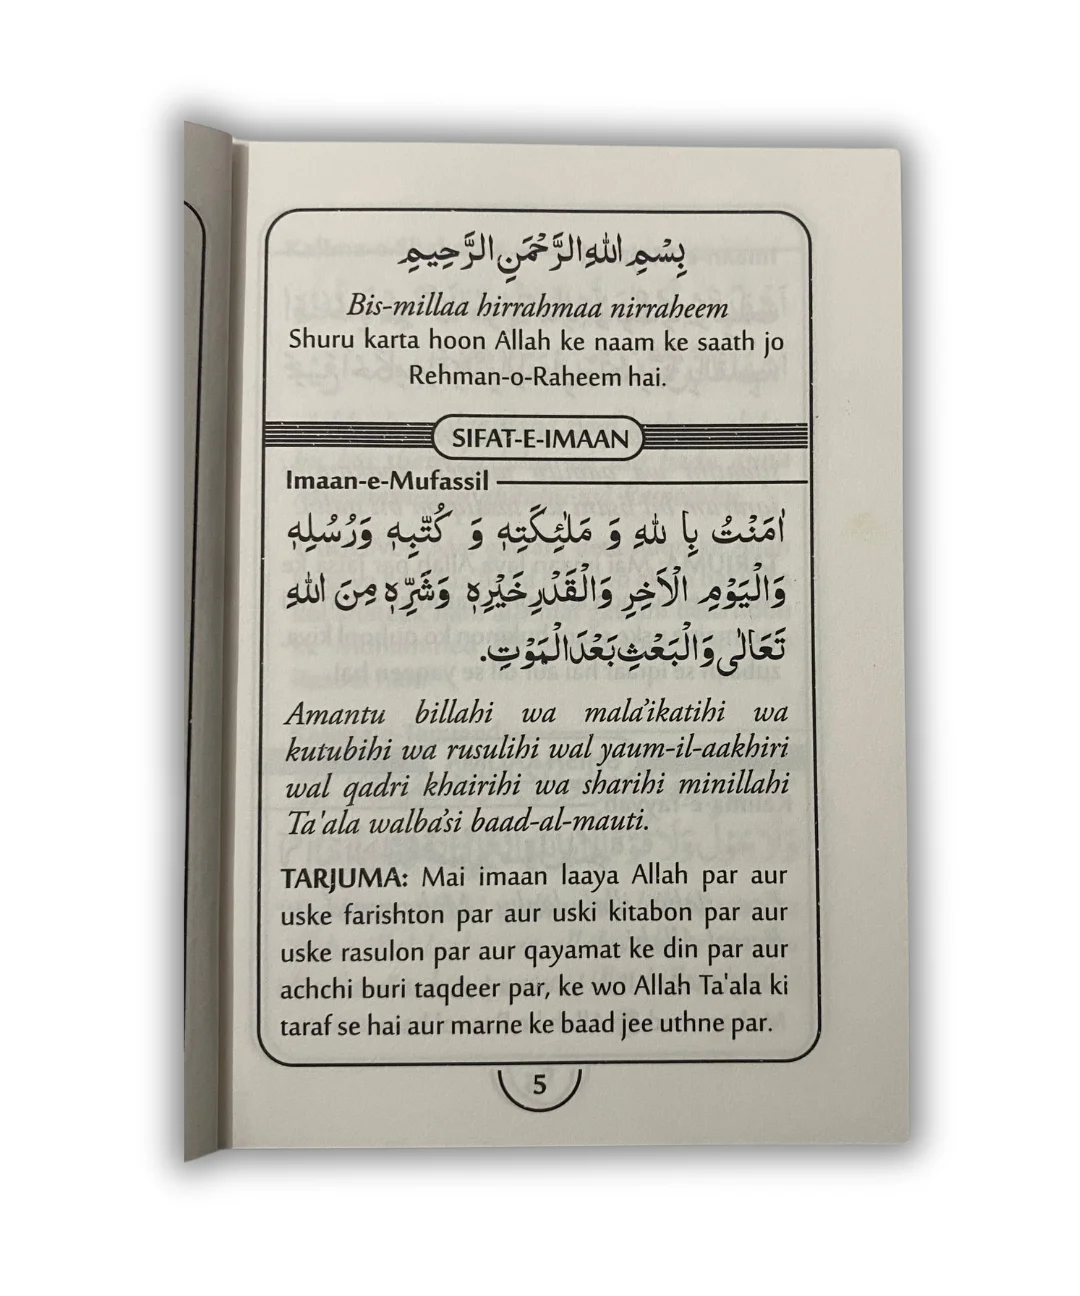 بِسْمِ اللهِ الرَّحْمَنِ الرَّحِيمِ
Bis-millaa hirrahmaa nirraheem
Shuru karta hoon Allah ke naam ke saath jo
Rehman-o-Raheem hai.
SIFAT-E-IMAAN
Imaan-e-Mufassil
اٰمَنْتُ بِا للهِ وَ مَلٰئِكَتِهٖ وَ كُتُبِهٖ وَرُسُلِهٖ
وَالْيَوْمِ الْاٰخِرِ وَالْقَدْرِ خَيْرِهٖ وَشَرِّهٖ مِنَ اللهِ
تَعَالٰى وَالْبَعْثِ بَعْدَ الْمَوْتِ.
Amantu billahi wa mala'ikatihi wa
kutubihi wa rusulihi wal yaum-il-aakhiri
wal qadri khairihi wa sharihi minillahi
Ta'ala walba'si baad-al-mauti.
TARJUMA: Mai imaan laaya Allah par aur
uske farishton par aur uski kitabon par aur
uske rasulon par aur qayamat ke din par aur
achchi buri taqdeer par, ke wo Allah Ta'ala ki
taraf se hai aur marne ke baad jee uthne par.
5